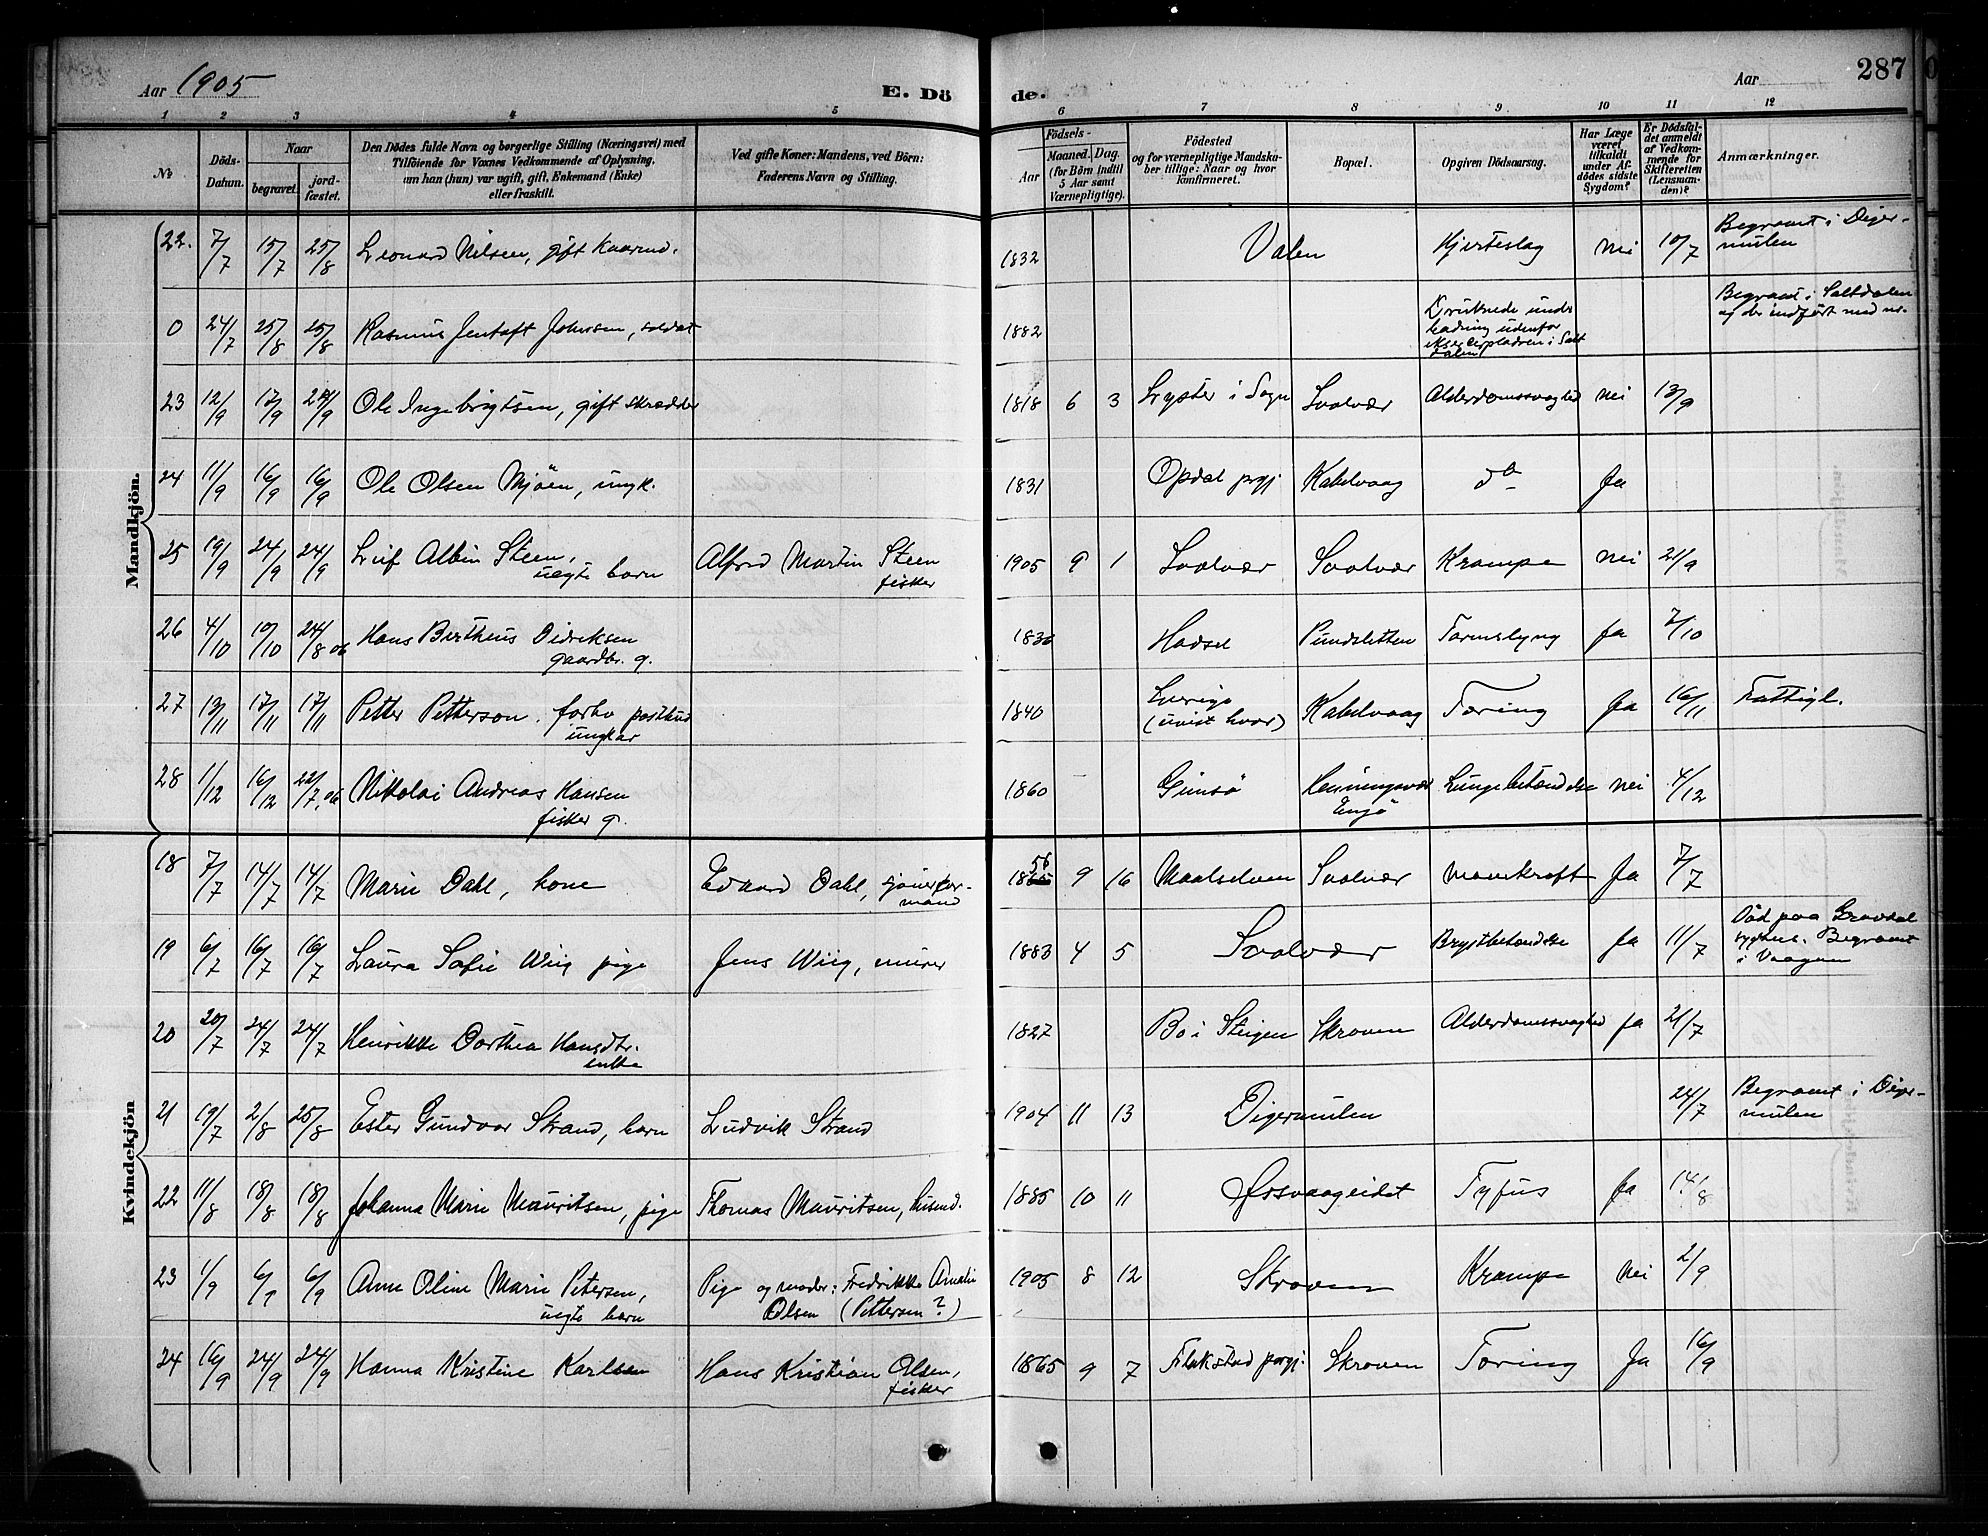 Aar 1905
E. Dö
de.
Aar
287
1 2 3 4 5 6 7 8 9 10 11 12
No
Döds-Datum.
Naar
begravet.
jord-fæstet.
Den Dödes fulde Navn og borgerlige Stilling (Næringsvei) med
Tilföiende for Voxnes Vedkommende af Oplysning,
om han (hun) var ugift, gift, Enkemand (Enke)
eller fraskilt.
Ved gifte Koner: Mandens, ved Börn:
Faderens Navn og Stilling.
Födsels-
Aar
Maaned. Dag.
(for Börn indtil
5 Aar samt
Værnepligtige).
Födested
og for værnepligtige Mandska-
ber tillige: Naar og hvor
konfirmeret.
Bopæl.
Opgiven Dödsaarsag.
Har Læge
været
tilkaldt
under Af-
dödes sidste
Sygdom?
Er Dödsfal-
det anmeldt
af Vedkom-
mende for
Skifteretten
(Lensman-
den)?
Anmærkninger.
Mandkjön.
22. 7/7 15/7 25/8 Leonard Nilsen, gift kaarmd. 1832 Valen Hjerteslag nei 10/7 Begravet i Diger-
mulen
0 24/7 25/8 25/8 Rasmus Jentoft Johnsen, soldat 1882 Druknede under
badning udenfor
ekserserpladsen i Salt
dalen
Begravet i Saltdalen
og der indført med nr.
23 12/9 17/9 24/9 Ole Ingebrigtsen, gift skrædder 1818 6 3 Lyster i Sogn Svolvær Alderdomssvaghed nei 13/9
24 11/9 16/9 16/9 Ole Olsen Mjöen, ungk. 1831 Opdal prgj Kabelvaag do Ja
25 19/9 24/9 24/9 Leif Albin Steen,
uegte barn
Alfred Martin Steen
fisker
1905 9 1 Svolvær Svolvær Krampe nei 21/9
26 4/10 10/10 24/8 06 Hans Bertheus Didriksen
gaardbr. g.
1836 Hadsel Pundsletten Tarmslyng Ja 7/10
27 13/11 17/11 17/11 Petter Petterson, forhv postbud
ungkar
1840 Sverige
(uvist hvor)
Kabelvaag Tæring Ja 16/11 Fattigl.
28 1/12 16/12 22/7, 06 Nikolai Andreas Hansen
fisker g.
1860 Gimsö Henningsvær
Engö
Lungebetændelse nei 4/12
Kvindekjön
18 7/7 14/7 14/7 Marie Dahl, kone Edvard Dahl, sjouerfor-
mand
1856 9 16 Maalselven Svolvær mavekræft Ja 7/7
19 6/7 16/7 16/7 Laura Sofie Wiig pige Jens Wiig, murer 1883 4 5 Svolvær Brystbetændelse Ja 11/7 Död paa Gravdal
sygehus. Begravet
i Vaagan
20 20/7 24/7 24/7 Henrikke Dorthea Hansdtr.
enke
1827 Bo i Steigen Skroven Alderdomssvaghed Ja 21/7
21 19/7 2/8 25/8 Ester Gundvor Strand, barn Ludvik Strand 1904 11 13 Digermulen 24/7 Begravet i Diger-
mulen
22 11/8 18/8 18/8 Johanna Marie Mauritsen, pige Thomas Mauritsen, husmd. 1885 10 11 Ørsvaageidet Tyfus Ja 14/8
23 1/9 6/9 6/9 Anne Oline Marie Petersen,
uegte barn
Pige og moder: Fredrikke Amalie
Olsen (Pettersen?)
1905 8 12 Skroven Krampe nei 2/9
24 16/9 24/9 24/9 Hanna Kristine Karlsen Hans Kristian Olsen,
fisker
1865 9 7 Flakstad prgj. Skroven Tæring Ja 16/9